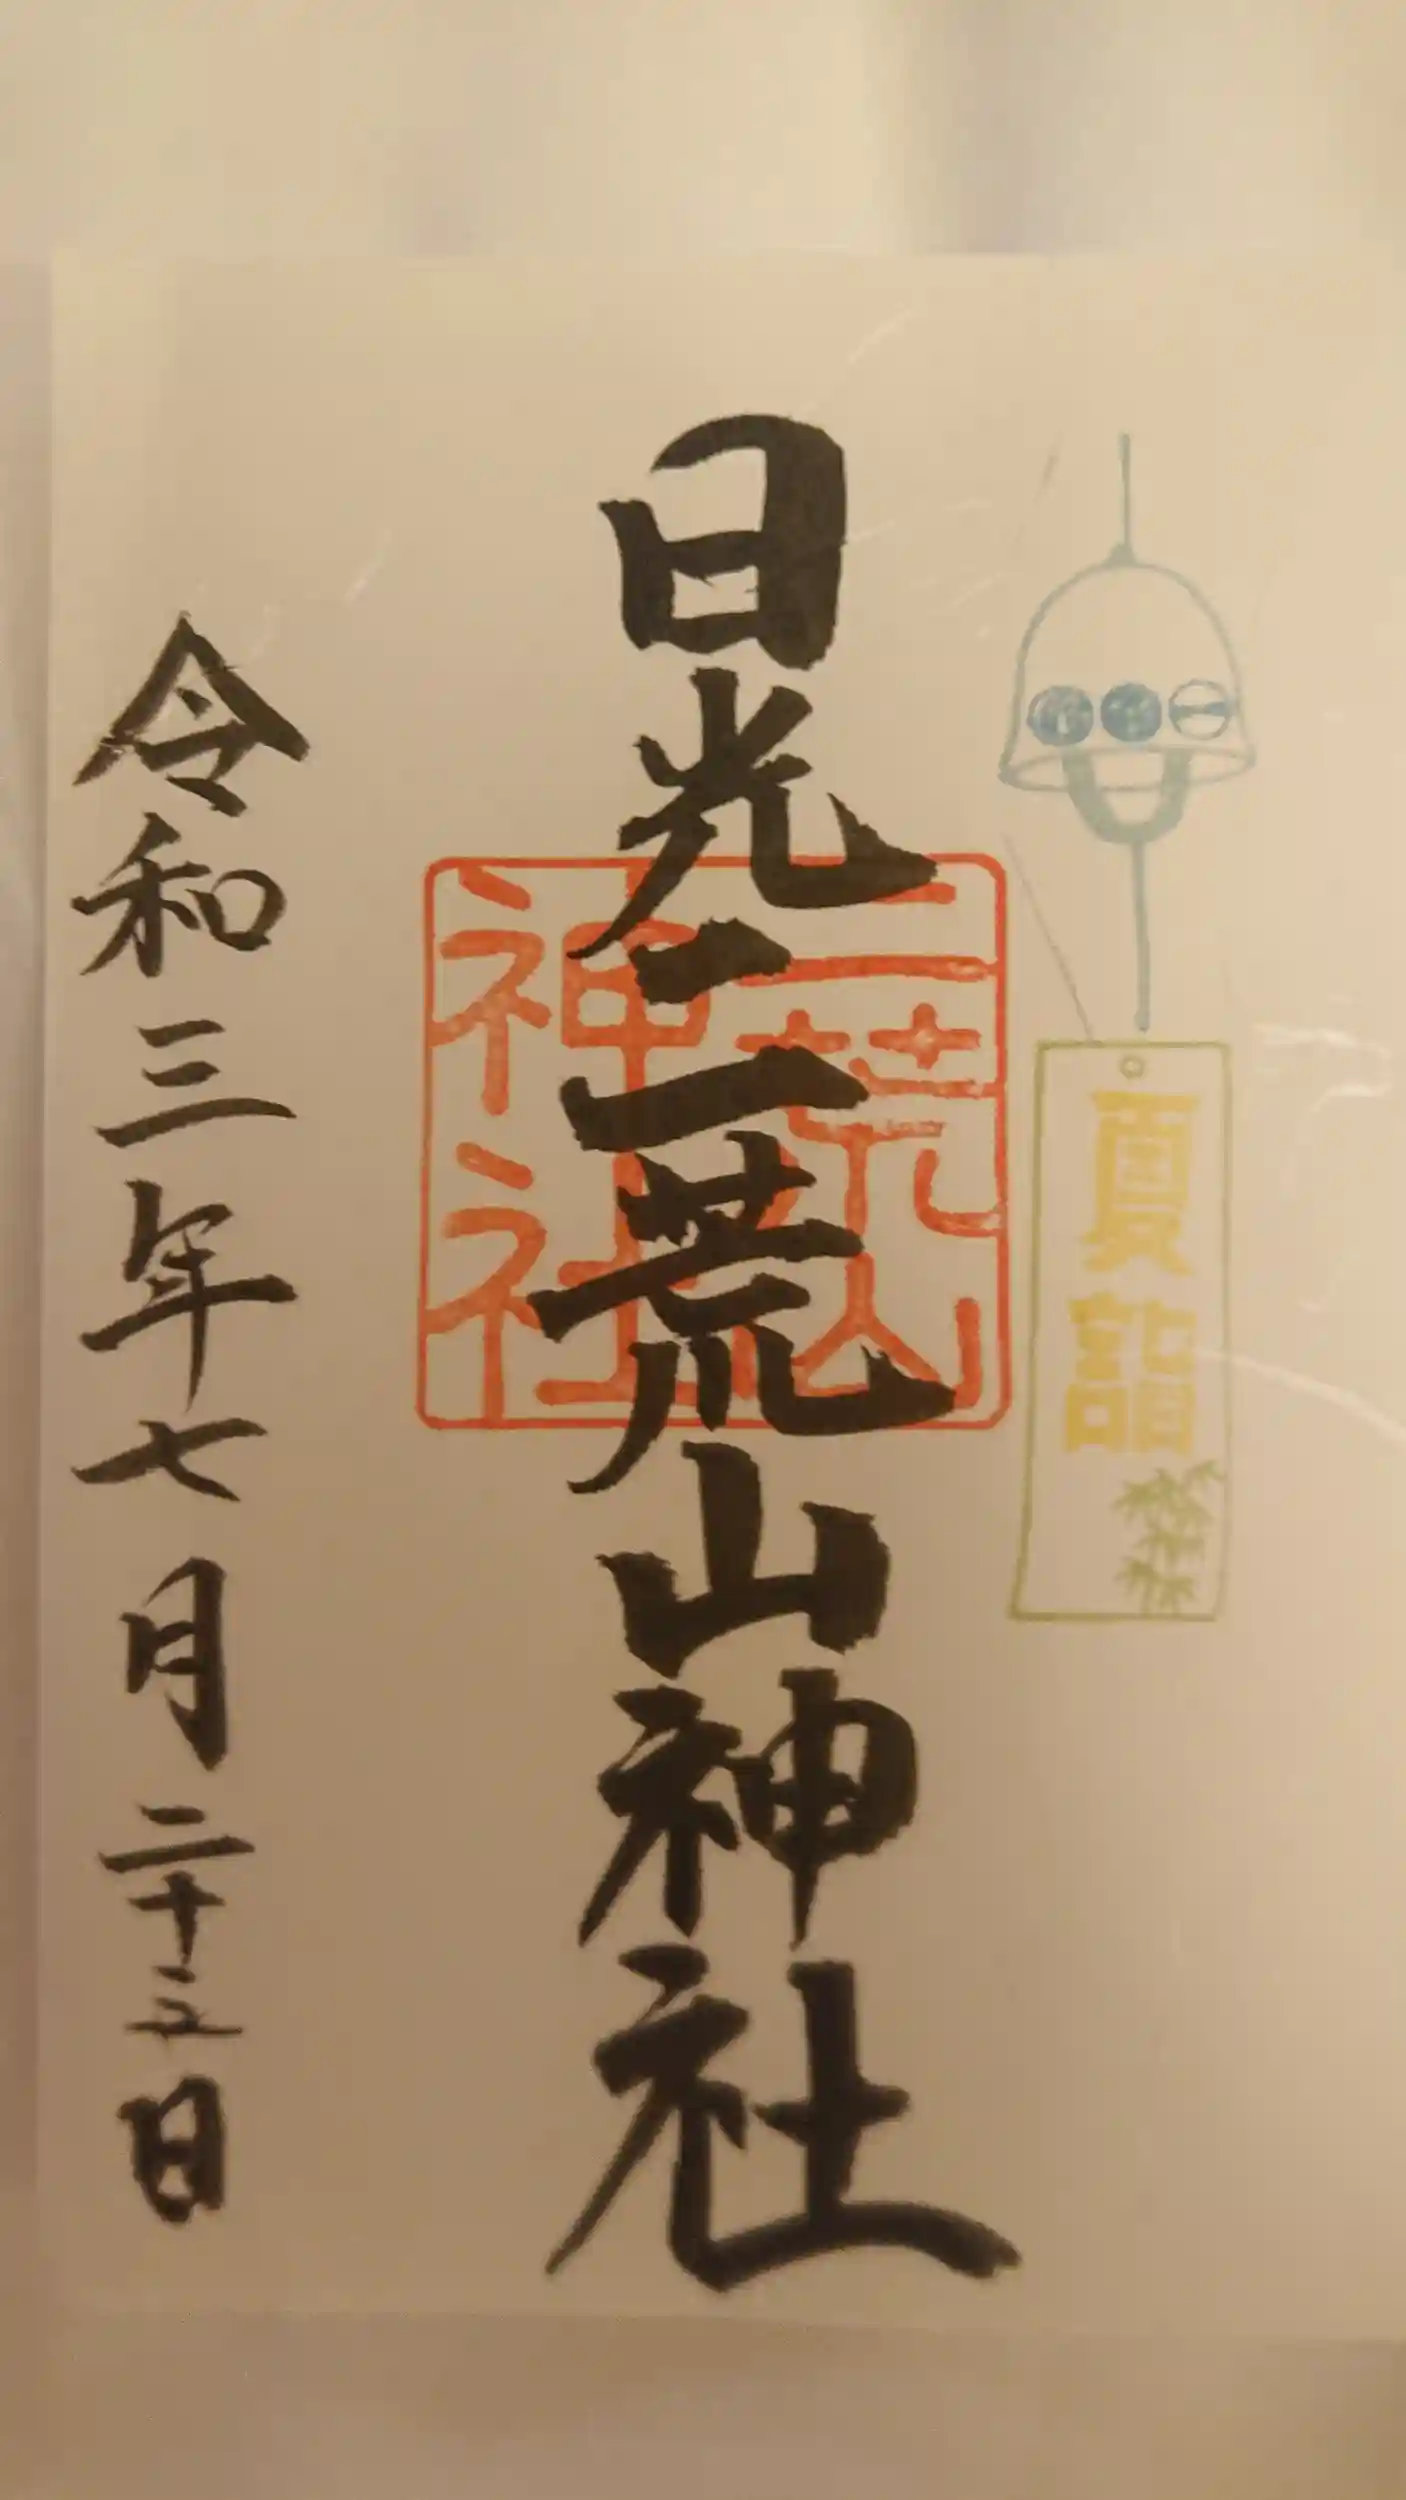 夏詣
日光二荒山神社
二荒山神社
令和三年七月二十三日